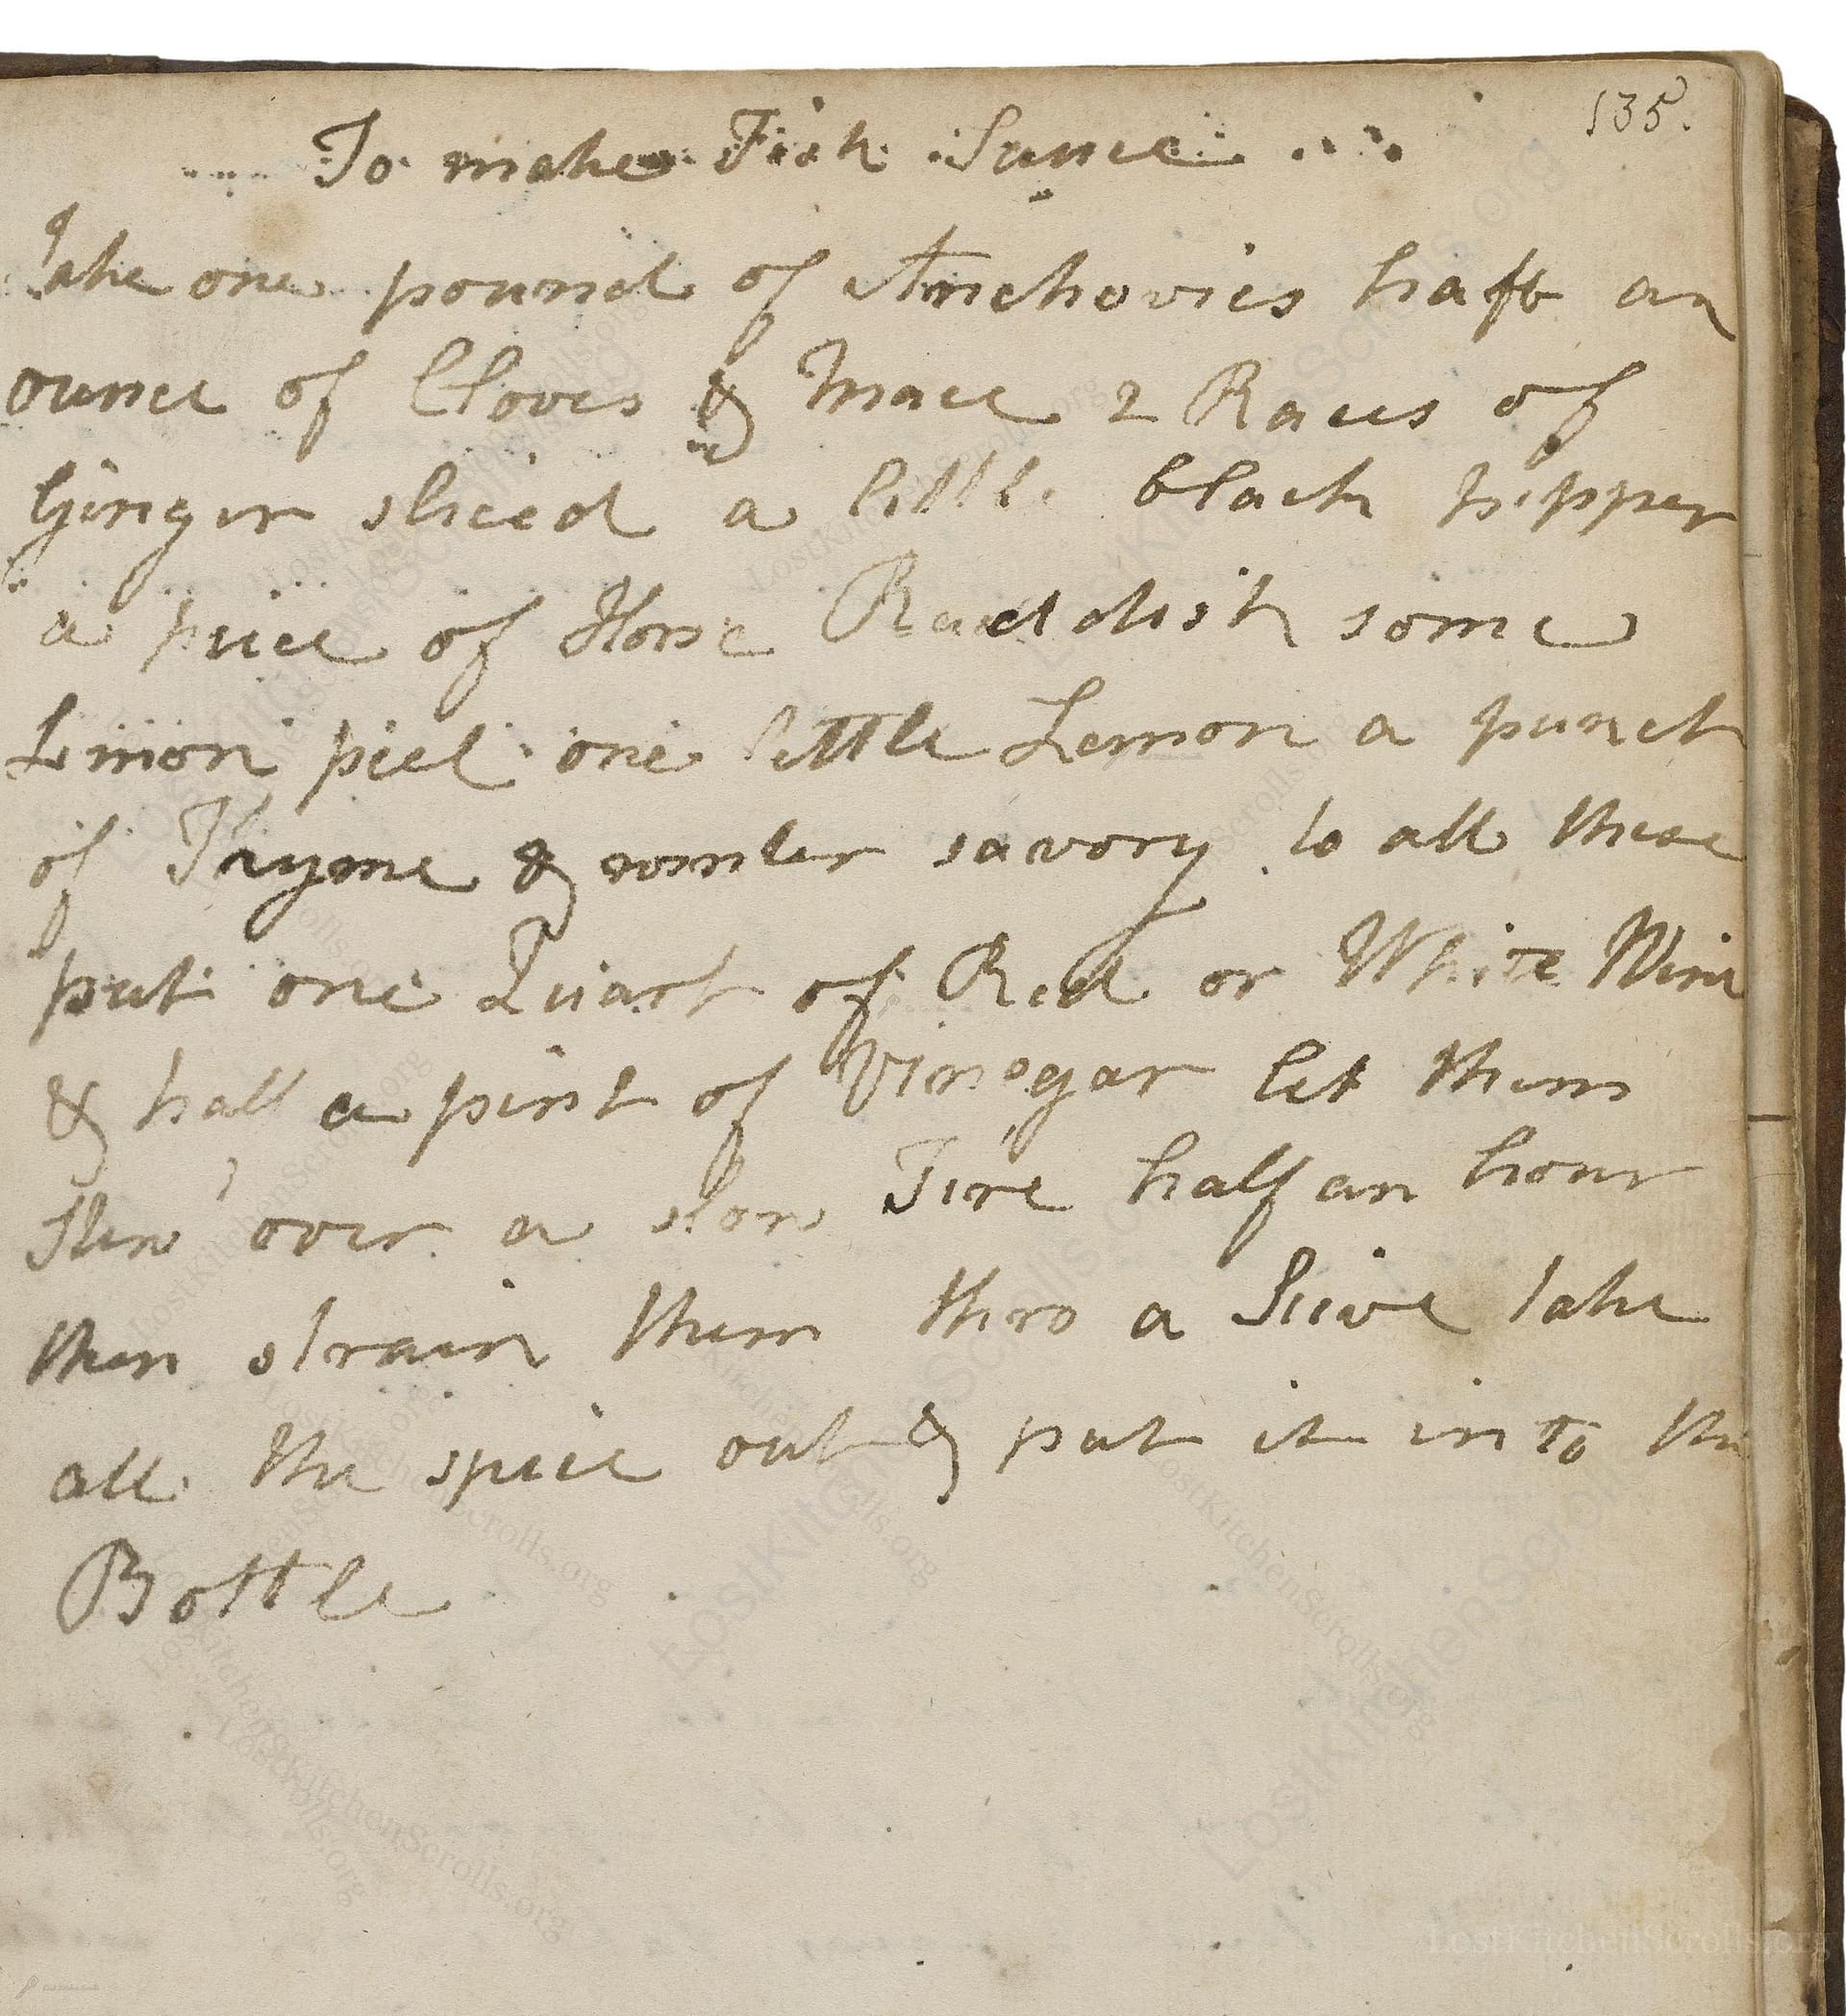 135.
To make Fish Sauce
Take one pound of Anchovies haft an
ounce of Cloves & Mace 2 Races of
Ginger sliced a little black pepper
a piece of Horse Raddish some
Lemon peel one little Lemon a punch
of Thyme & winter savory to all these
put one Quart of Red or White Wine
& half a pint of Vinegar let them
Stew over a slow Fire half an hour
then strain them thro a Seive take
all the spice out & put it into the
Bottle
LostKitchenScrolls.org